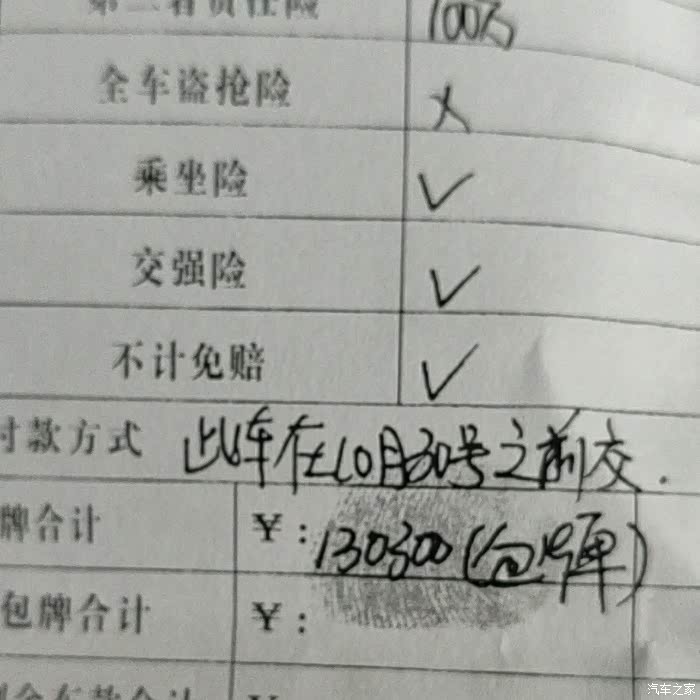 第三者责任险 100万
全车盗抢险 ×
乘坐险 ✓
交强险 ✓
不计免赔 ✓
付款方式 此车在10月30号之前交.
牌合计 ¥: 130300(包牌)
包牌合计 ¥:
汽车之家